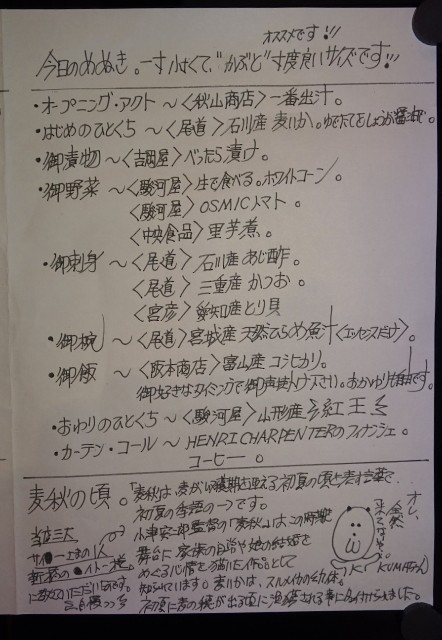 オススメです!!!
今日のめぬき。一寸小さくて、"かぶと"丁度良いサイズです!!!
・オープニング・アクト〜〈秋山商店〉一番出汁。
・はじめのひとくち〜〈尾道〉石川産 麦いか。ゆでたてをしょうが醤油で。
・御漬物〜〈吉岡屋〉べったら漬け。
・御野菜〜〈駿河屋〉生で食べる。ホワイトコーン。
〈駿河屋〉OSMICトマト。
〈中央食品〉里芋煮。
・御刺身〜〈尾道〉石川産 あじ酢。
〈尾道〉三重産 かつお。
〈宮彦〉愛知産 とり貝
・御椀〜〈尾道〉宮城産 天然ひらめ魚汁〈エッセンスだけ〉。
・御飯〜〈阪本商店〉富山産 コシヒカリ。
御好きなタイミングで御声掛け下さい。おかわり自由です。
・おわりのひとくち〜〈駿河屋〉山形産 紅王
・カーテン・コール〜HENRI CHARPENTERのフィナンシェ。
コーヒー。
麦秋の頃。「麦秋は、麦が収穫期を迎える初夏の頃を表す言葉で
初夏の季語の一つです。
小津安二郎監督の「麦秋」は、この時期
舞台に家族の日常や娘の結婚を
めぐる心情を描いた作品として
知られています。麦いかは、スルメイカの幼体。
初夏に麦の穂が出る頃に漁獲される事に名付けられました。
オレ、
全然
KUMAちゃん